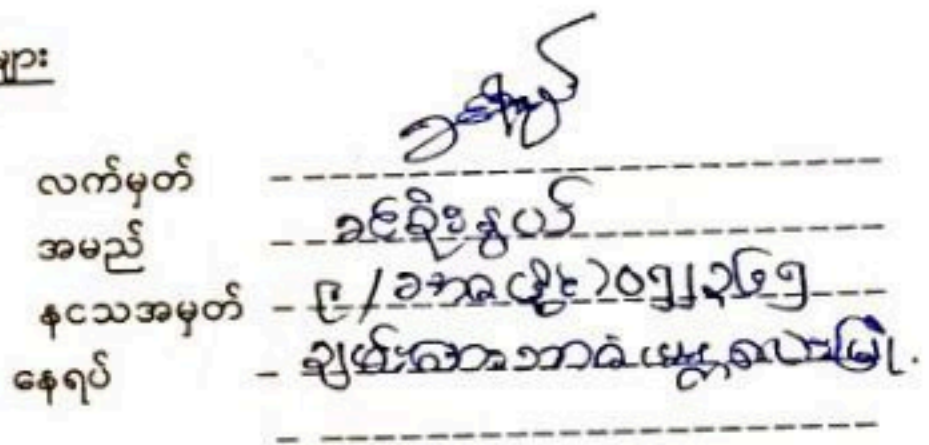 များ
လက်မှတ်
အမည် ခင်စိုးနွယ်
နငသအမှတ် ၉/ခအဇ(နိုင်)၀၅၂၃၆၅
နေရပ် ချမ်းအေးသာဇံ မန္တလေးမြို့.